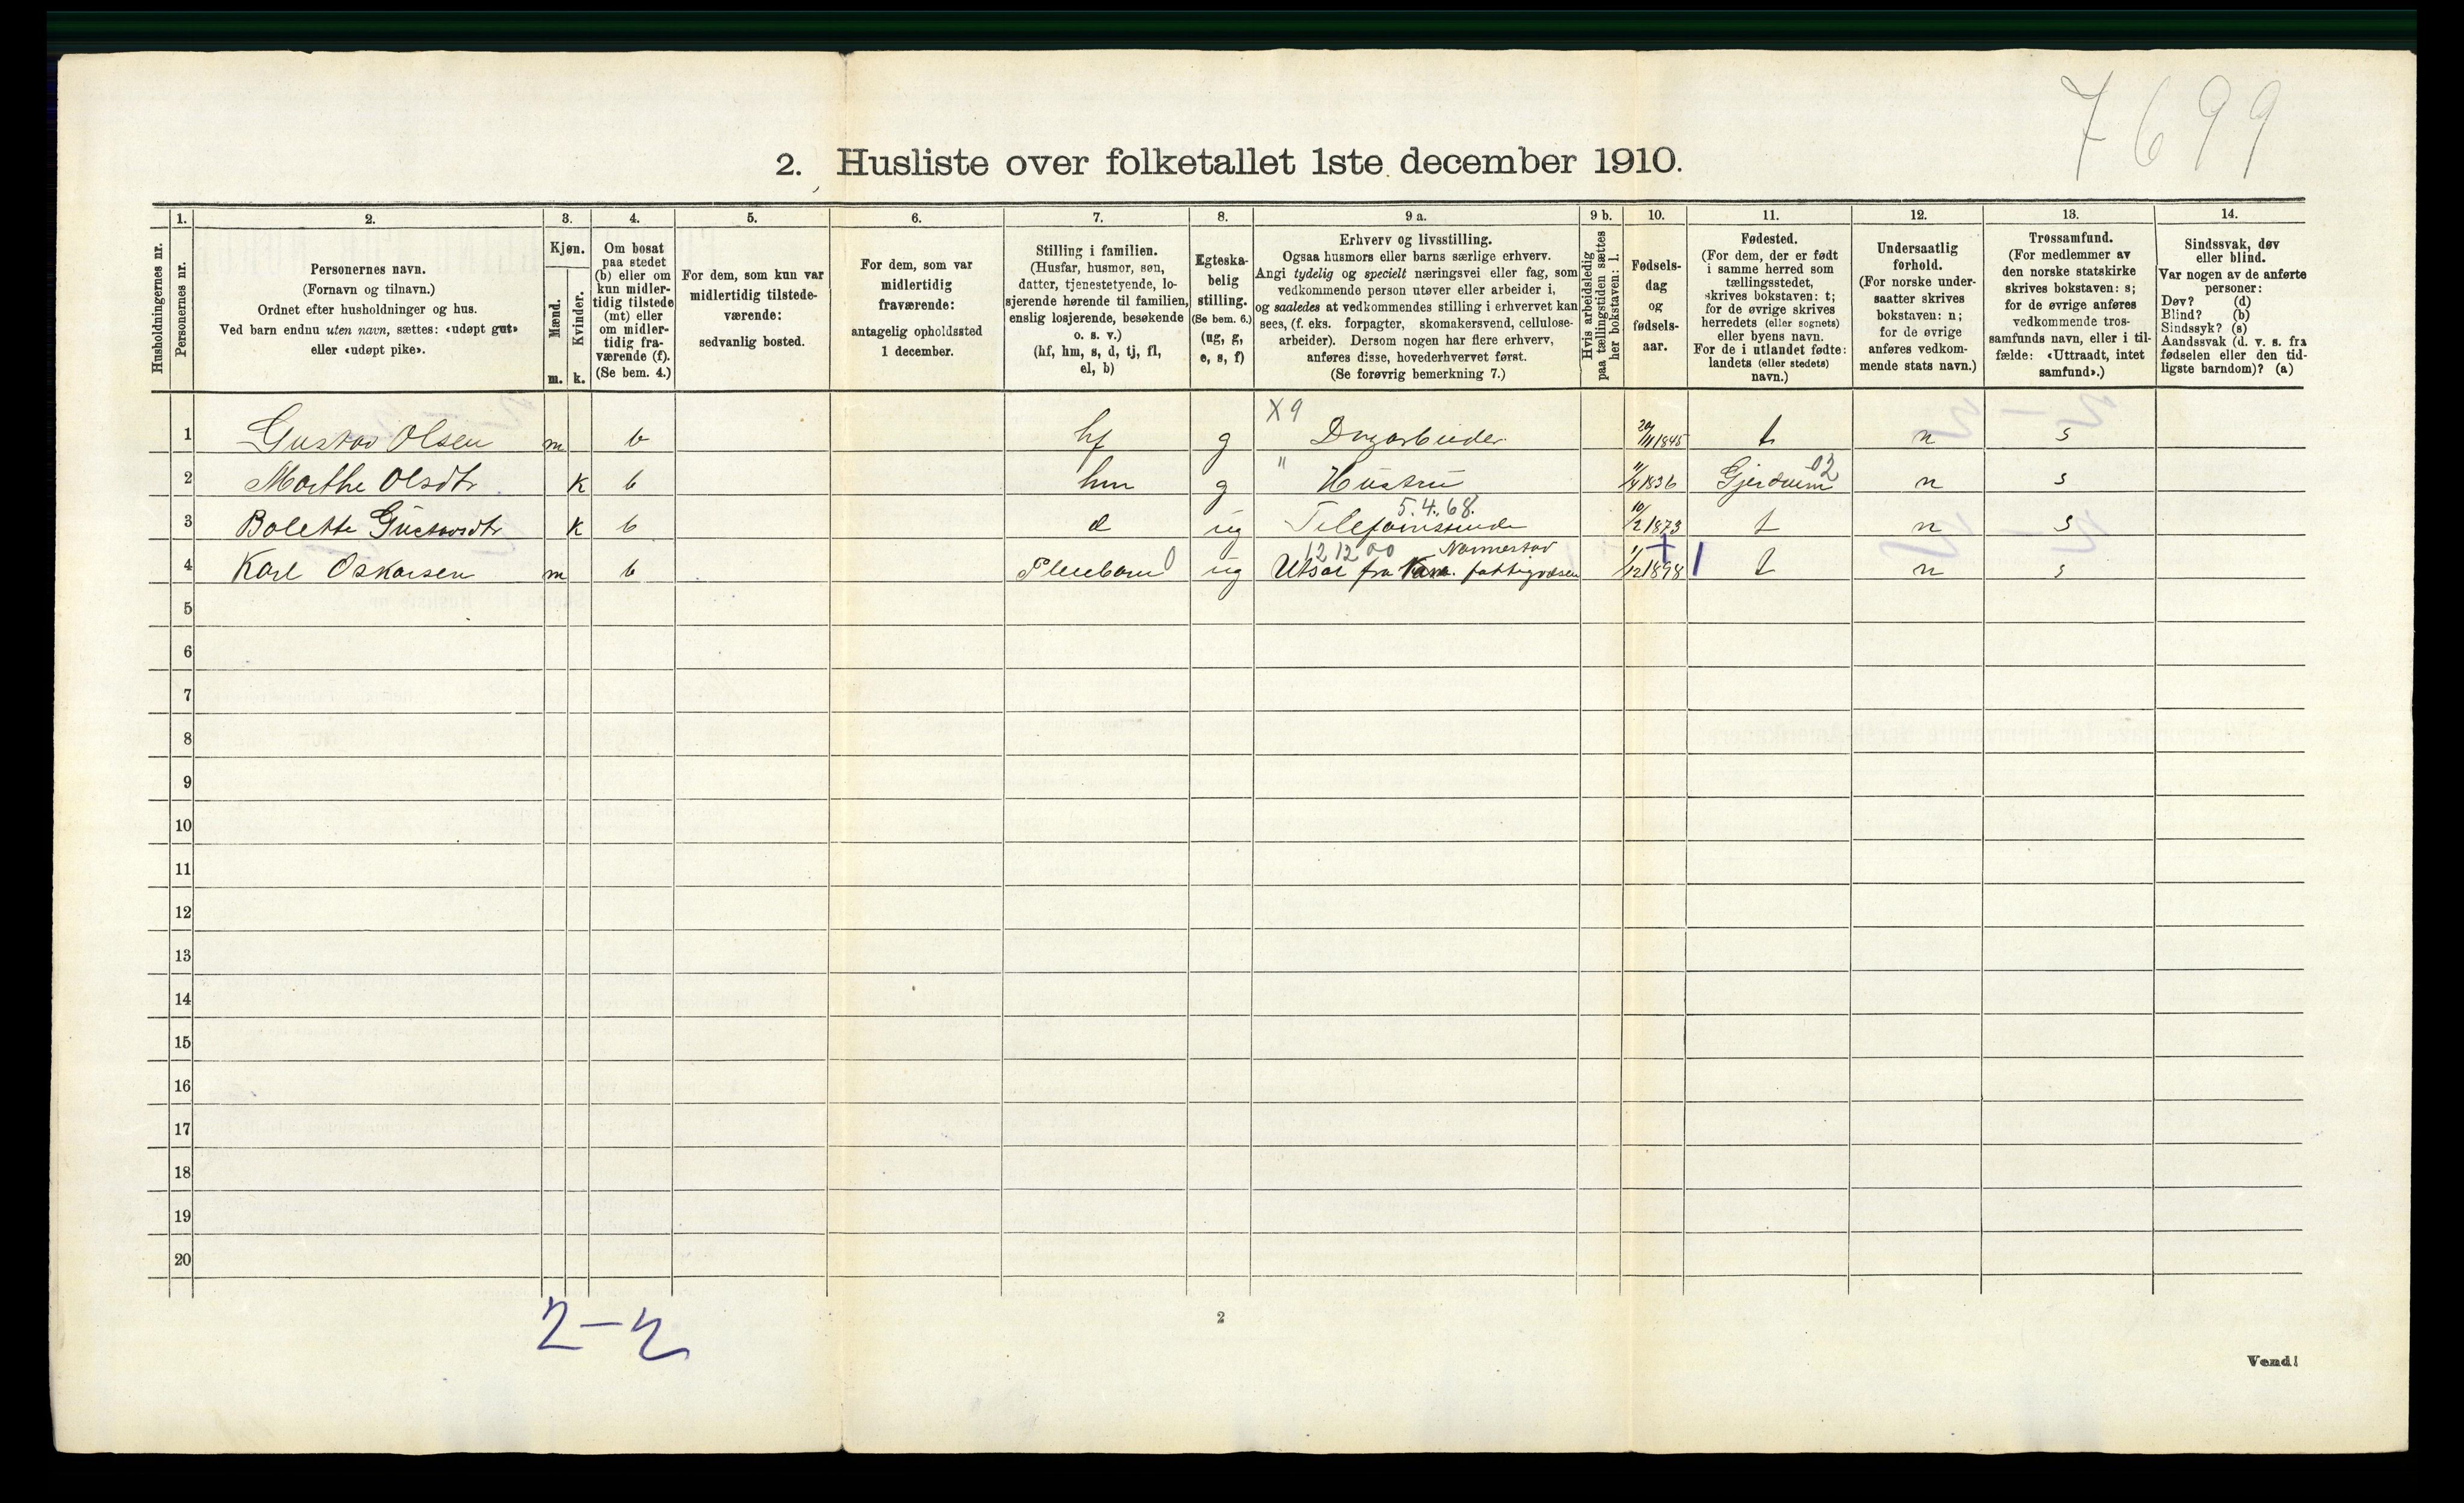 7699
2. Husliste over folketallet 1ste december 1910.
Husholdningernes nr.
1. Personernes nr.
2. Personernes navn. (Fornavn og tilnavn.) Ordnet efter husholdninger og hus. Ved barn endnu uten navn, sættes: «udøpt gut» eller «udøpt pike».
3. Kjøn. Mænd. m. Kvinder. k.
4. Om bosat paa stedet (b) eller om kun midlertidig tilstede (mt) eller om midlertidig fraværende (f). (Se bem. 4.)
5. For dem, som kun var midlertidig tilstedeværende: sedvanlig bosted.
6. For dem, som var midlertidig fraværende: antagelig opholdssted 1 december.
7. Stilling i familien. (Husfar, husmor, søn, datter, tjenestetyende, losjerende hørende til familien, enslig losjerende, besøkende o. s. v.) (hf, hm, s, d, tj, fl, el, b)
8. Egteskabelig stilling. (Se bem. 6.) (ug, g, e, s, f)
9 a. Erhverv og livsstilling. Ogsaa husmors eller barns særlige erhverv. Angi tydelig og specielt næringsvei eller fag, som vedkommende person utøver eller arbeider i, og saaledes at vedkommendes stilling i erhvervet kan sees, (f. eks. forpagter, skomakersvend, cellulosearbeider). Dersom nogen har flere erhverv, anføres disse, hovederhvervet først. (Se forøvrig bemerkning 7.)
9 b. Hvis arbeidsledig paa tællingstiden sættes her bokstaven: l.
10. Fødselsdag og fødselsaar.
11. Fødested. (For dem, der er født i samme herred som tællingsstedet, skrives bokstaven: t; for de øvrige skrives herredets (eller sognets) eller byens navn. For de i utlandet fødte: landets (eller stedets) navn.)
12. Undersaatlig forhold. (For norske undersaatter skrives bokstaven: n; for de øvrige anføres vedkommende stats navn.)
13. Trossamfund. (For medlemmer av den norske statskirke skrives bokstaven: s; for de øvrige anføres vedkommende trossamfunds navn, eller i tilfælde: «Uttraadt, intet samfund».)
14. Sindssvak, døv eller blind. Var nogen av de anførte personer: Døv? (d) Blind? (b) Sindssyk? (s) Aandssvak (d. v. s. fra fødselen eller den tidligste barndom)? (a)
X 9
1 Gustav Olsen m b hf g Dagarbeider 29/11 1845 t n s
2 Marthe Olsdtr k b hm g " Hustru 11/4 1836 Gjerdrum 02 n s
5.4.68.
3 Bolette Gustavsdtr k b d ug Telefonistinde 10/2 1873 t n s
12 12 00 Nannestad
4 Karl Oskarsen m b Pleiebarn 0 ug Utsat fra fattigvæsen 11/12 1898 t n s
5
6
7
8
9
10
11
12
13
14
15
16
17
18
19
20
2-2
2
Vend!